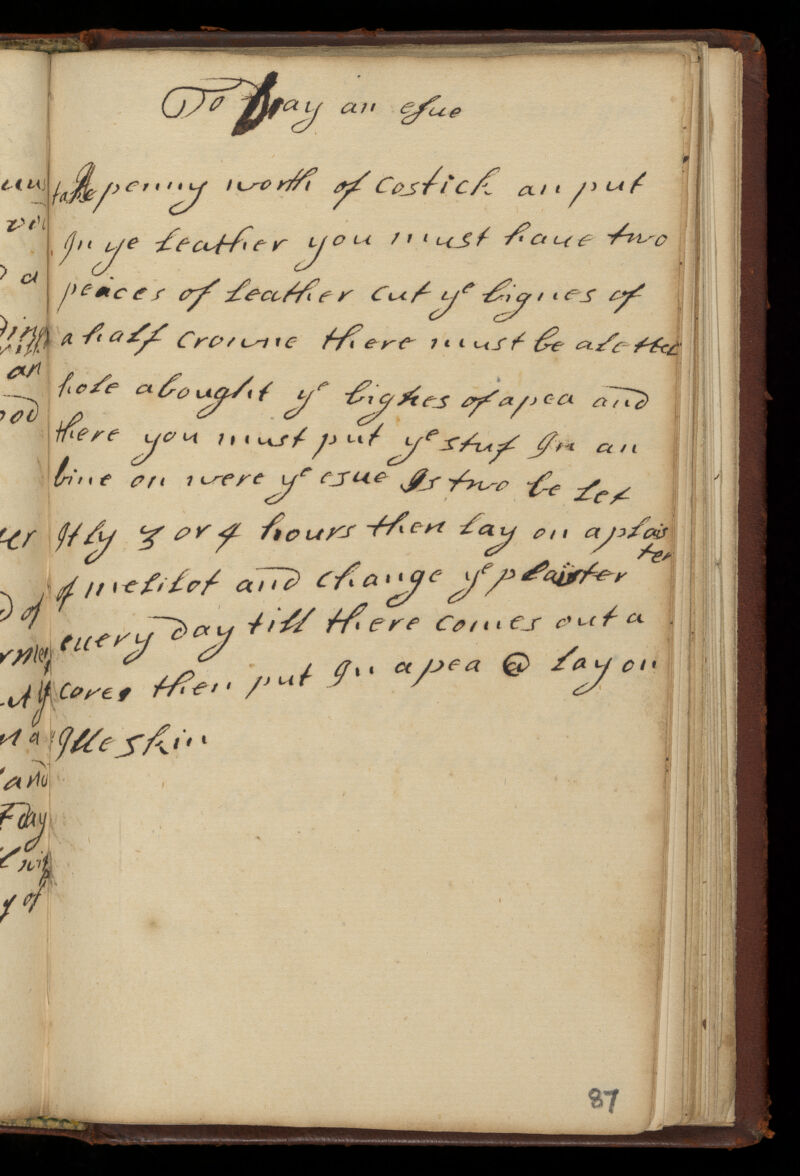 To Lay an esue
take A penny worth of Costick an put
In ye Leather you must haue two
peaces of Leather Cut ye bignes of
a half Crowne there must be a Lettel
hole abought ye bignes of a pea and
there you must put ye stuf In an
bine on were ye esue Is two be Let
It ly 3 or 4 hours then Lay on a plais
ter
of melilot and Change ye plaister
euery day till there Comes out a
Core then put In a pea @ Lay on
skin
87
and
an
a
day
of
of